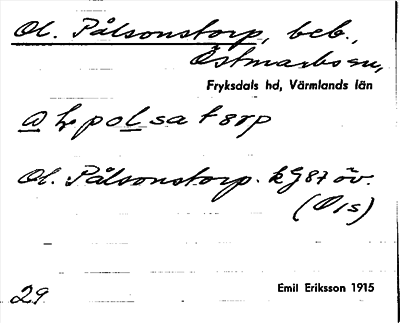 Ol. Pålsonstorp, beb.,
Östmarks sn,
Fryksdals hd, Värmlands län
Ol. Pålsonstorp. kG87 öv.
(Ols)
29.
Emil Eriksson 1915